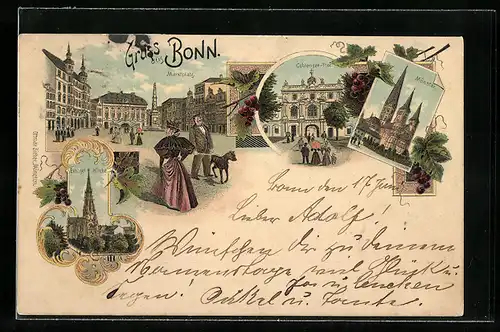 Gruss aus BONN.
Marktplatz
Coblenzer-Thor
Münster
Kirche
Bonn den 17 Juni
Lieber Adolf!
Wünschen dir zu deinem
Namenstage viel Glück u.
Segen! Onkel u. Tante.